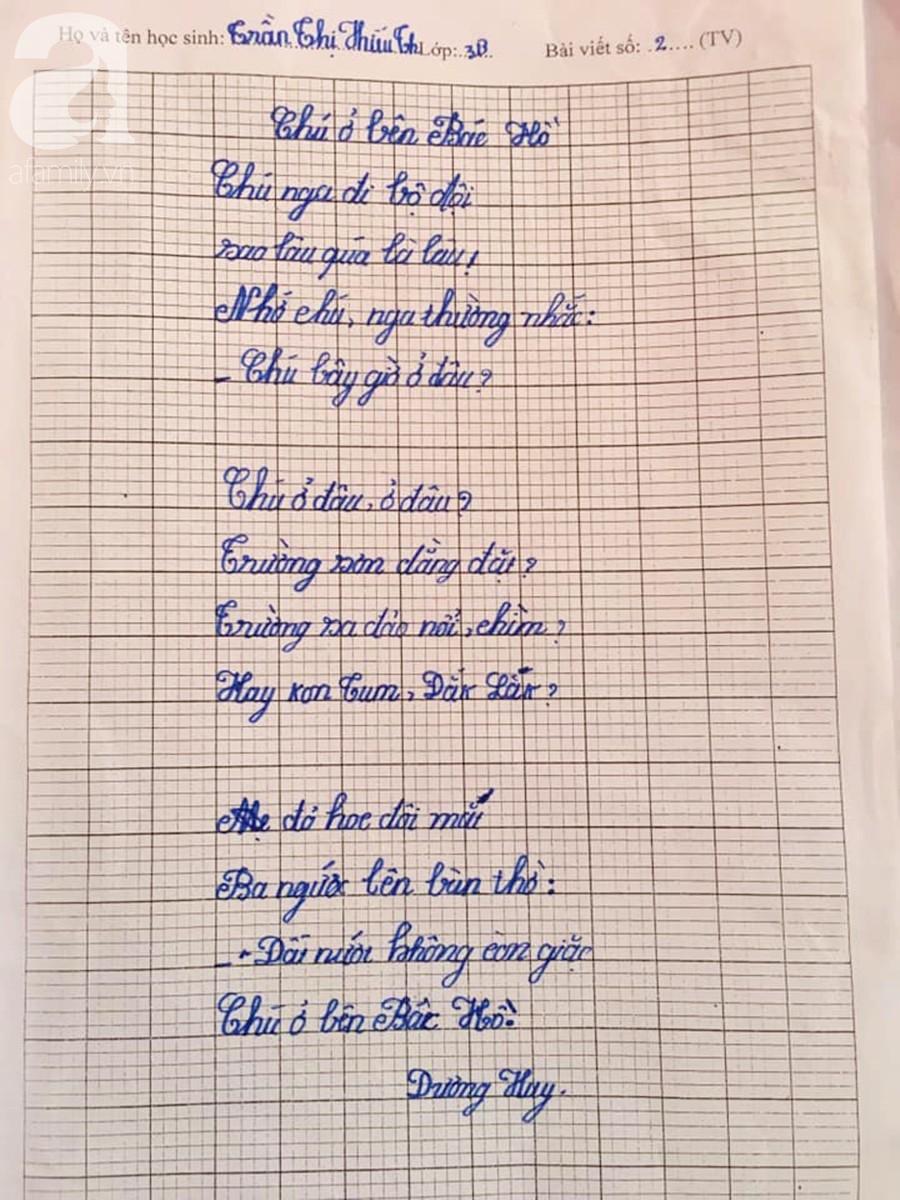 Họ và tên học sinh: Trần Thị Thúy Lớp: 3B. Bài viết số: .2.... (TV)
afamily.vn
Chú ở bên Bác Hồ
Chú nga đi bộ đội
sao lâu quá là lâu!
Nhớ chú, nga thường nhắc:
- Chú bây giờ ở đâu?
Chú ở đâu, ở đâu?
Trường sơn dằng đặc?
Trường sa đảo nổi, chìm?
Hay kon Tum, Dắk Lắk?
Mẹ đỏ hoe đôi mắt
Ba ngước lên bàn thờ:
- Đất nước không còn giặc
Chú ở bên Bác Hồ.
Dương Huy.